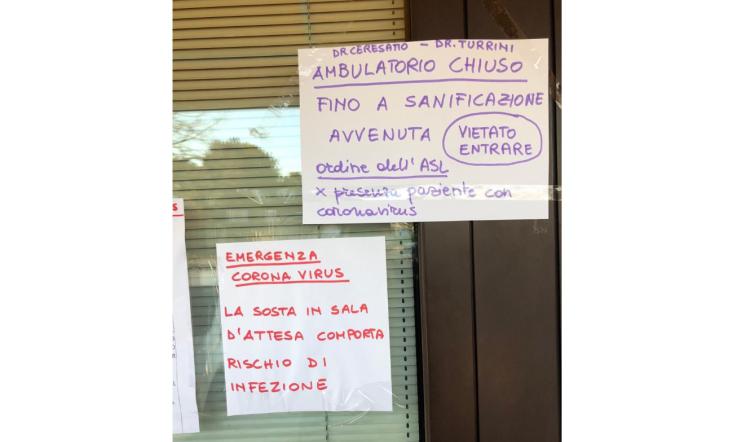 DR CERESATO - DR. TURRINI
AMBULATORIO CHIUSO
FINO A SANIFICAZIONE
AVVENUTA VIETATO
ENTRARE
ordine dell'ASL
x presenza paziente con
coronavirus
EMERGENZA
CORONA VIRUS
LA SOSTA IN SALA
D'ATTESA COMPORTA
RISCHIO DI
INFEZIONE